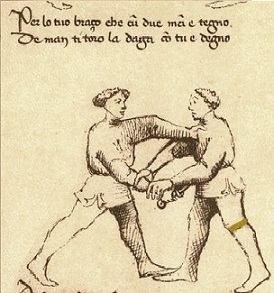 Per lo tuo braço che cũ due mã e tegno.
De man ti torò la daga cõ tu e degno